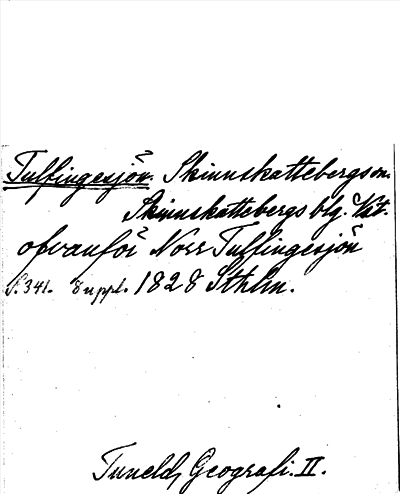 Tulfingesjön. Skinnskattebergs sn.
Skinnskattebergs blg. Väst.
ofvanför Norr Tulfingesjön
S. 341. 8 uppl. 1828 Sthlm.
Tuneld, Geografi. II.